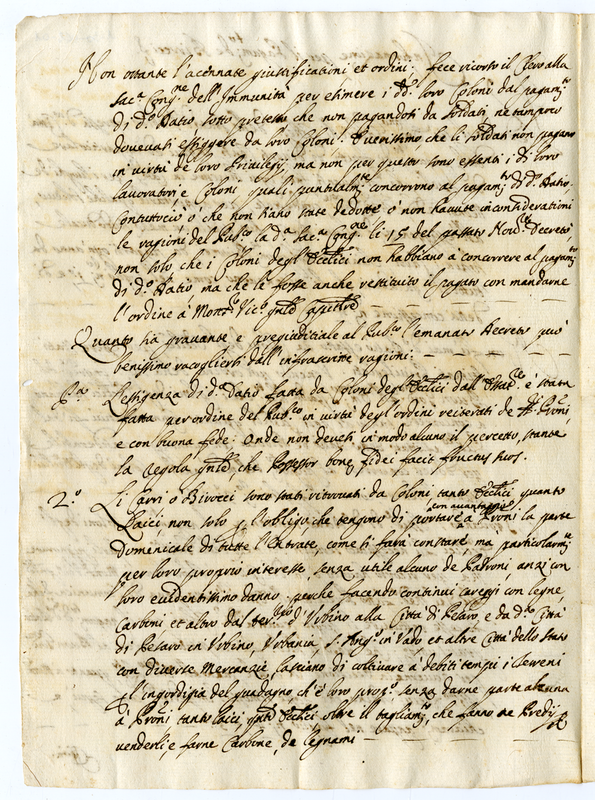 Non ostante l'acennate giustificationi et ordini: fece ricorso il Clero alla
sac.ª Cong.ne dell'Immunità per esimere i d.i loro Coloni dal pagam.to
di d.º Datio sotto pretesto che non pagandoti da soldati, ne tampoco
dovevati essiggere da loro Coloni. Verissimo che li soldati non pagano
in virtù de loro Privilegij, ma non per questo sono essenti i d.i loro
lavoratori e Coloni quali puntualm.te concorrono al pagam.to di d.º Datio.
Contuttociò o che non siano state dedotte o non havute in considerationi
le ragioni del Pub.co la d.ª sac.ª Cong.ne li 15 del passato Nov.re Decretò
non solo che i Coloni degl'Eccl.ici non habbiano a concorrere al pagam.to
di d.º Datio ma che le fosse anche restituito il pagato con mandarne
l'ordine à Mons.r Vic.º Capitolare
Quanto sia gravante e pregiuditiale al Pub.co l'emanato Decreto può
benissimo racoglierti dall'infrascritte ragioni:
P.ª L'essigenza di d.º Datio fatta da Coloni degl'Eccl.ici è stata
fatta per ordine del Pub.co in virtù degl'ordini reiterati de Proni,
e con buona fede: Onde non deveti in modo alcuno il percetto, stante
la Regola che Possessor bonę fidei facit fructus suos.
2.º Li Carri o Birocci sono stati ritrovati da Coloni tanto Eccl.ici quanto
Laici non solo p l'obligo che tengono di portare à Proni la parte
con avantaggio
Domenicale di tutte l'Entrate, come ti farà constare, mà particolarm.te
per loro proprio interesse, senza utile alcuno de Padroni anzi con
loro evidentissimo danno: perche facendo continui careggi con legne,
Carboni et altro dal d'Urbino alla Città di Pesaro, e da d.ª Città
di Pesaro in Urbino, Urbania, S. Ang.º in Vado et altre Città dello Stato
con diverse Mercanzie, lasciano di coltivare à debiti tempi i terreni
p l'ingordigia del guadagno ch'è loro prop.º senza darne parte alcuna
à Proni tanto laici, Eccl.ici oltre il tagliam.to, che fanno ne Predij p
venderli, e farne Carbone, de legnami